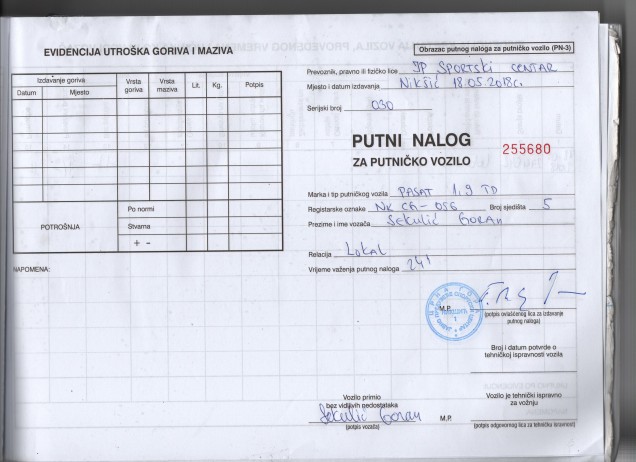 EVIDENCIJA UTROŠKA GORIVA I MAZIVA
Izdavanje goriva
Datum
Mjesto
Vrsta goriva
Vrsta maziva
Lit.
Kg.
Potpis
POTROŠNJA
Po normi
Stvarna
+ -
NAPOMENA:
Obrazac putnog naloga za putničko vozilo (PN-3)
Prevoznik, pravno ili fizičko lice JP SPORTSKI CENTAR
Mjesto i datum izdavanja NIKŠIĆ 18.05.2018G.
Serijski broj 030
PUTNI NALOG
ZA PUTNIČKO VOZILO
255680
Marka i tip putničkog vozila PASAT 1.9 TD
Registarske oznake NK CA-056 Broj sjedišta 5
Prezime i ime vozača SEKULIĆ GORAN
Relacija LOKAL
Vrijeme važenja putnog naloga 24
M.P.
(potpis ovlašćenog lica za izdavanje
putnog naloga)
Broj i datum potvrde o
tehničkoj ispravnosti vozila
Vozilo primio
bez vidljivih nedostataka
Sekulić Goran
(potpis vozača)
M.P.
Vozilo je tehnički ispravno
za vožnju
(potpis odgovornog lica za tehničku ispravnost)